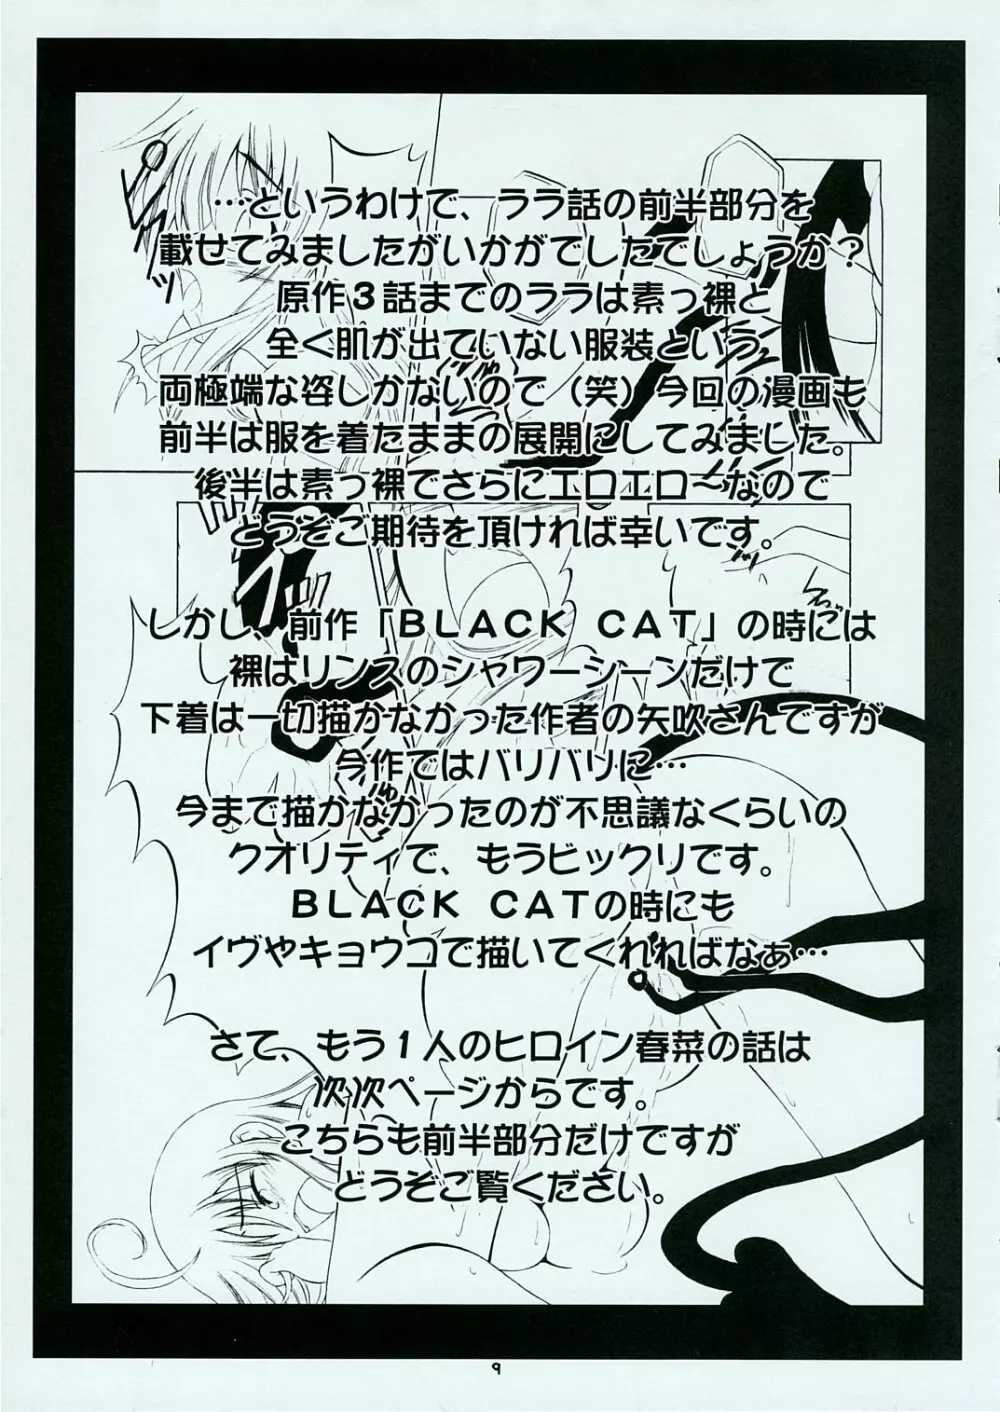 …というわけで、ララ話の前半部分を
載せてみましたがいかがでしたでしょうか？
原作３話までのララは素っ裸と
全く肌が出ていない服装という
両極端な姿しかないので（笑）今回の漫画も
前半は服を着たままの展開にしてみました。
後半は素っ裸でさらにエロエロ～なので
どうぞご期待を頂ければ幸いです。
しかし、前作「ＢＬＡＣＫ　ＣＡＴ」の時には
裸はリンスのシャワーシーンだけで
下着は一切描かなかった作者の矢吹さんですが
今作ではバリバリに…
今まで描かなかったのが不思議なくらいの
クオリティで、もうビックリです。
ＢＬＡＣＫ　ＣＡＴの時にも
イヴやキョウコで描いてくれればなぁ…
さて、もう１人のヒロイン春菜の話は
次次ページからです。
こちらも前半部分だけですが
どうぞご覧ください。
9